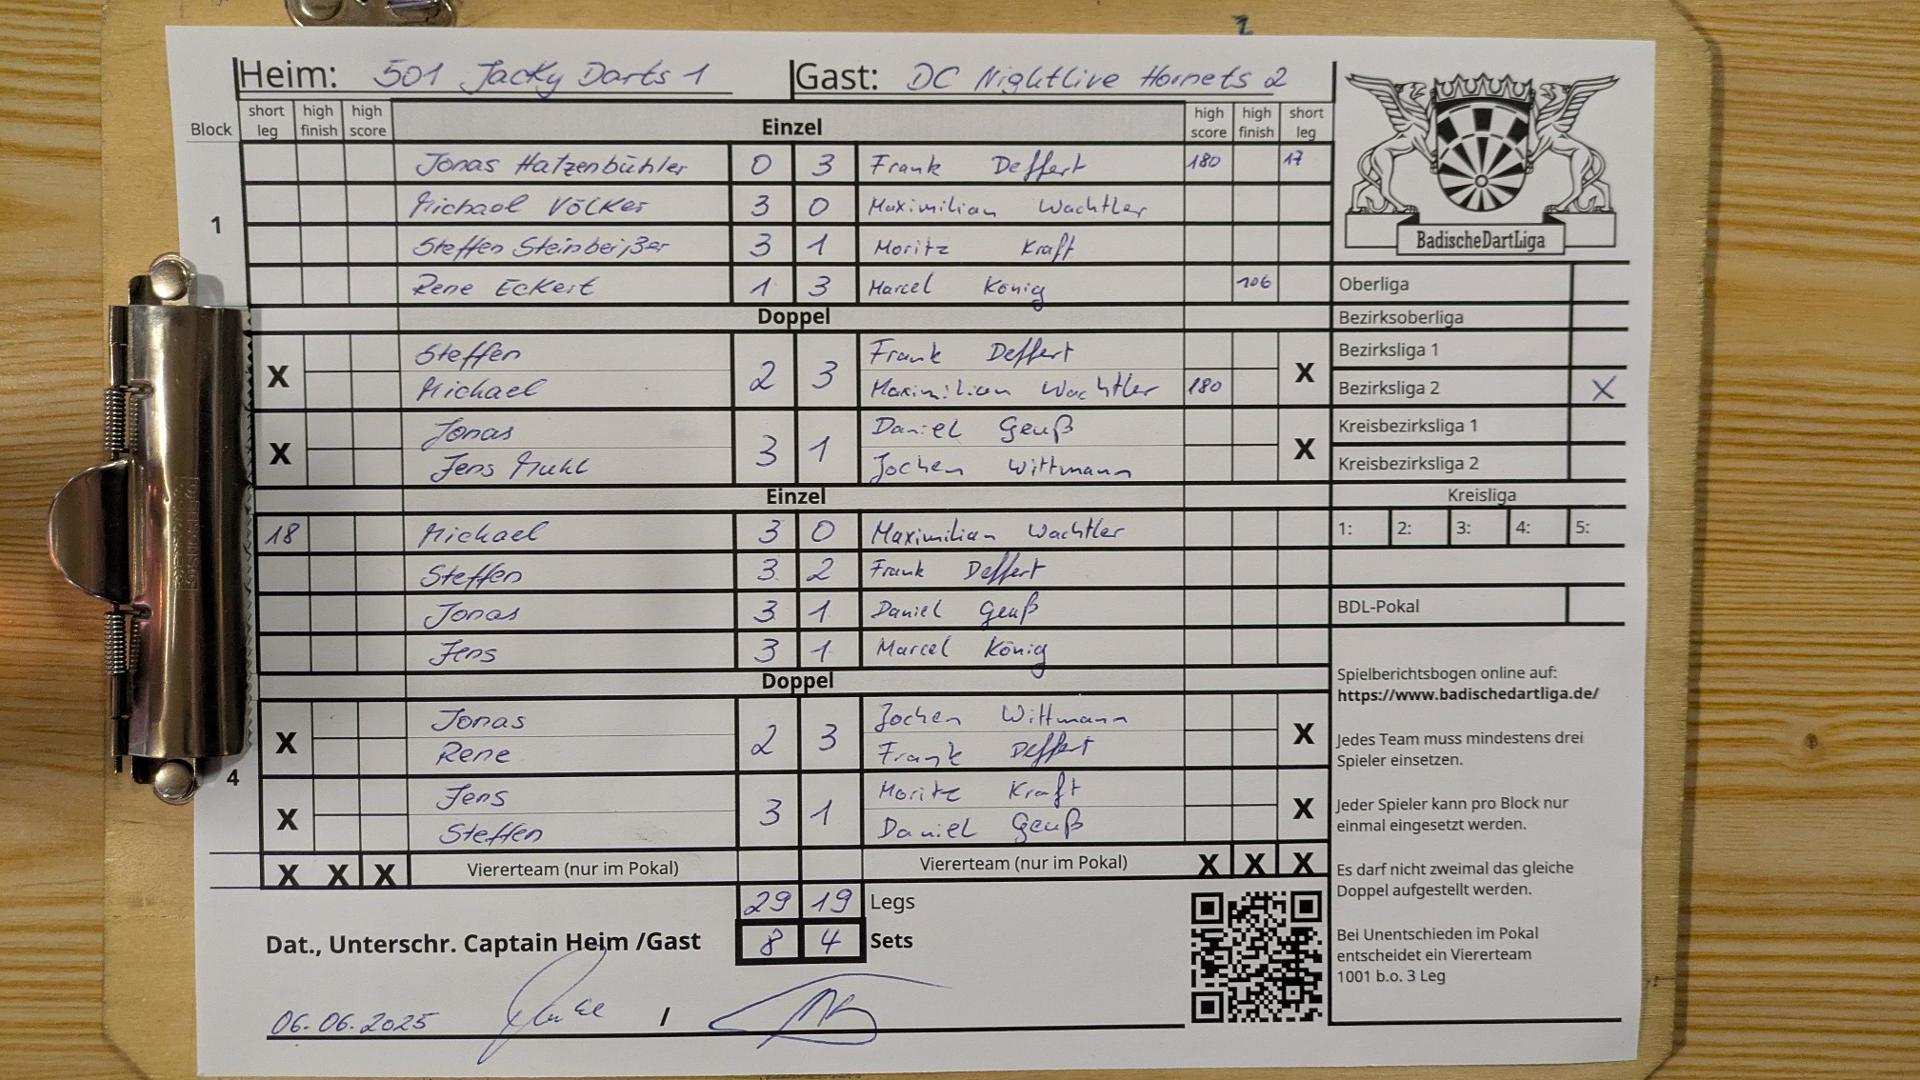 Heim: 501 Jacky Darts 1 Gast: DC Nightlive Hornets 2
Block short leg high finish high score Einzel high score high finish short leg
1
Jonas Hatzenbühler 0 3 Frank Deffert 180 17
Michael Völker 3 0 Maximilian Wachtler
Steffen Steinbeißer 3 1 Moritz Kraft
Rene Eckert 1 3 Marcel König 106
Doppel
X Steffen 2 3 Frank Deffert X
Michael Maximilian Wachtler 180
X Jonas 3 1 Daniel Geuß X
Jens Muhl Jochen Wittmann
Einzel
18 Michael 3 0 Maximilian Wachtler
Steffen 3 2 Frank Deffert
Jonas 3 1 Daniel Geuß
Jens 3 1 Marcel König
Doppel
4
X Jonas 2 3 Jochen Wittmann X
Rene Frank Deffert
X Jens 3 1 Moritz Kraft X
Steffen Daniel Geuß
X X X Viererteam (nur im Pokal) Viererteam (nur im Pokal) X X X
29 19 Legs
Dat., Unterschr. Captain Heim /Gast 8 4 Sets
06.06.2025 /
BadischeDartLiga
Oberliga
Bezirksoberliga
Bezirksliga 1
Bezirksliga 2 X
Kreisbezirksliga 1
Kreisbezirksliga 2
Kreisliga
1: 2: 3: 4: 5:
BDL-Pokal
Spielberichtsbogen online auf:
https://www.badischedartliga.de/
Jedes Team muss mindestens drei
Spieler einsetzen.
Jeder Spieler kann pro Block nur
einmal eingesetzt werden.
Es darf nicht zweimal das gleiche
Doppel aufgestellt werden.
Bei Unentschieden im Pokal
entscheidet ein Viererteam
1001 b.o. 3 Leg